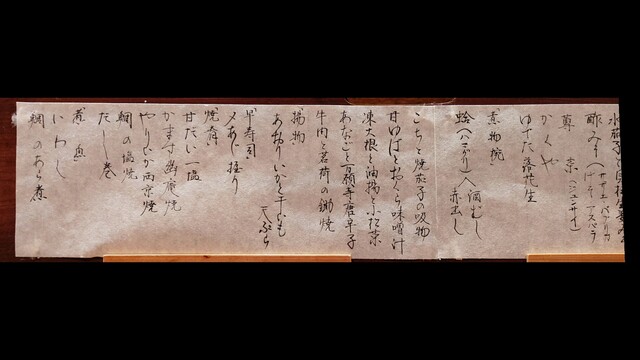 水茄子と
酢みそ(サザエ・パプリカ
ゲソ・アスパラ)
蓴菜(ジュンサイ)
かくや
ゆでた落花生
煮物椀
蛤(ハマグリ)酒むし
赤出し
こちと焼茄子の吸物
甘ゆばとおくら味噌汁
凍大根と油揚と小松菜
あなごと万願寺唐辛子
牛肉と茗荷の鍬焼
揚物
あおりいかと干いも
天ぷら
早寿司
〆あじ握り
焼肴
甘だい一塩
かます幽庵焼
やりいか西京焼
鯛の塩焼
だし巻
煮魚
いわし
鯛のあら煮